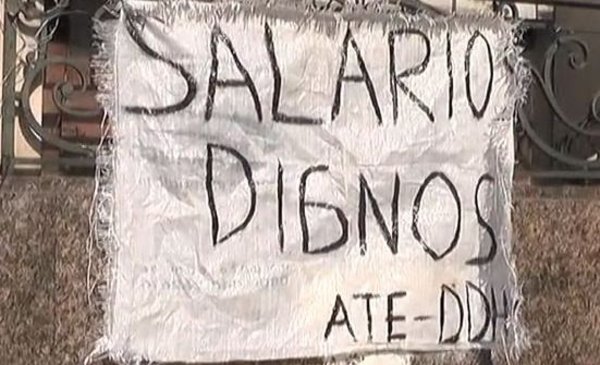 SALARIO
DIGNOS
ATE-DDH